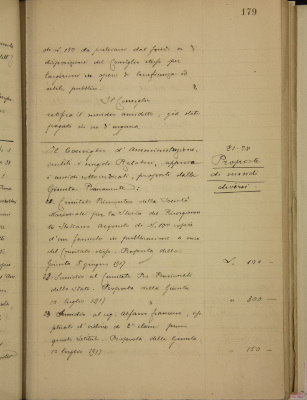 179
di L. 150 da prelevarsi dal fondo a
disposizione del Consiglio stesso per
largizioni in opere di beneficenza ed
utili pubbliche.
Il Consiglio
ratifica il sussidio suddetto, già stato
pagato in via d'urgenza.
Il Consiglio d'Amministrazione,
sentiti i singoli Relatori, approva
i sussidi sottoindicati, proposti dalla
Giunta Permanente:
21-23
Proposte
di sussidi
diversi
21. Comitato Piemontese della Società
Nazionale per la Storia del Risorgimen
to Italiano.
d'un fascicolo in pubblicazione a cura
del Comitato stesso. Proposta della
Giunta 8 giugno 1917
L. 100 -
22. Sussidio al Comitato Pro
dello Stato. Proposta della Giunta
12 luglio 1917
" 300 -
23. Sussidio al sig. Alfano Giovanni,
di 2ª classe presso
questo Istituto. Proposta della Giunta,
12 luglio 1917
" 150 -